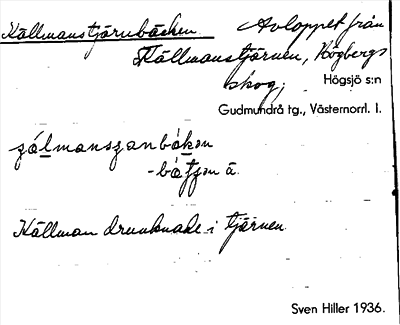 Källmanstjärnbäcken. Avloppet från
Källmanstjärnen, Högbergs
skog;
Högsjö s:n
Gudmundrå tg., Västernorrl. l.
Källman drunknade i tjärnen
Sven Hiller 1936.